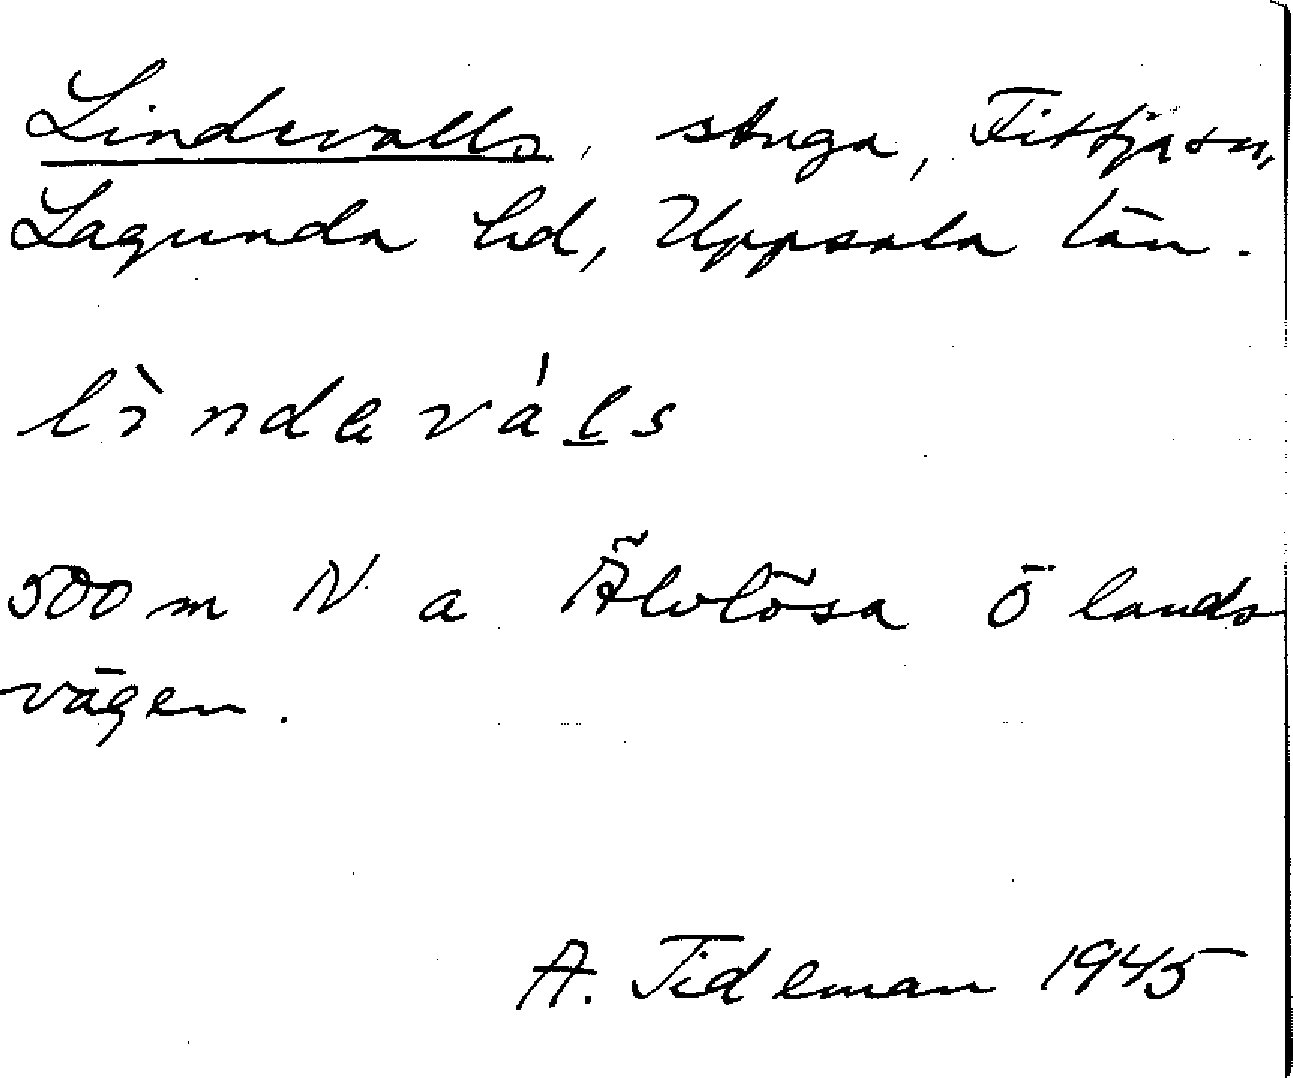 Lindevalls, stuga, Fittja sn,
Lagunda hd, Uppsala län.
lìndeváls
500 m N a Älvlösa Ö lands
vägen.
A. Tideman 1945